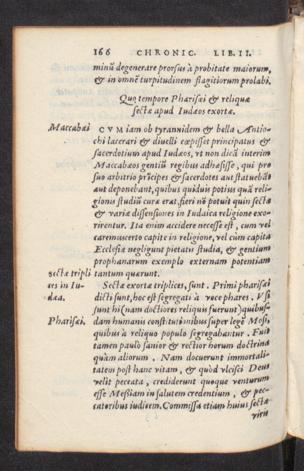 166 CHRONIC. LIB. II.
minū degenerare prorsus à probitate maiorum,
& in omnē turpitudinem flagitiorum prolabi.
Quo tempore Pharisæi & reliquæ
sectæ apud Iudæos exortæ.
Maccabæi CVM iam ob tyrannidem & bella Antio-
chi lacerari & diuelli cœpisset principatus &
sacerdotium apud Iudæos, vt non dicā interim
Maccabæos gentiū regibus adhæsisse, qui pro
suo arbitrio prīcipes & sacerdotes aut statuebāt
aut deponebant, quibus quiduis potius quā reli-
gionis studiū curæ erat, fieri nō potuit quin sectæ
& variæ dissensiones in Iudaica religione exo-
rirentur. Ita enim accidere necesse est, cum vel
ecarnescerto capite in religione, vel cùm capita
Ecclesiæ negligunt pietatis studia, & gentium
prophanarum exemplo externam potentiam
Sectæ tripli tantum quærunt.
ces in Iu- Sectæ exortæ triplices, sunt. Primi pharisæi
dæa. dicti sunt, hoc est segregati à voce phares. Vsi
sunt hi (nam doctiores reliquis fuerunt) quibus-
Pharisæi. dam humanis constitutionibus super legē Mosi,
quibus à reliquo populo segregabantur. Fuit
tamen paulò sanior & rectior horum doctrina
quàm aliorum. Nam docuerunt immortali-
tatem post hanc vitam, & quòd vlcisci Deus
velit peccata, crediderunt quoque venturum
esse Messiam in salutem credentium, & pec-
catoribus iudicem. Commissa etiam huius sectæ
viris